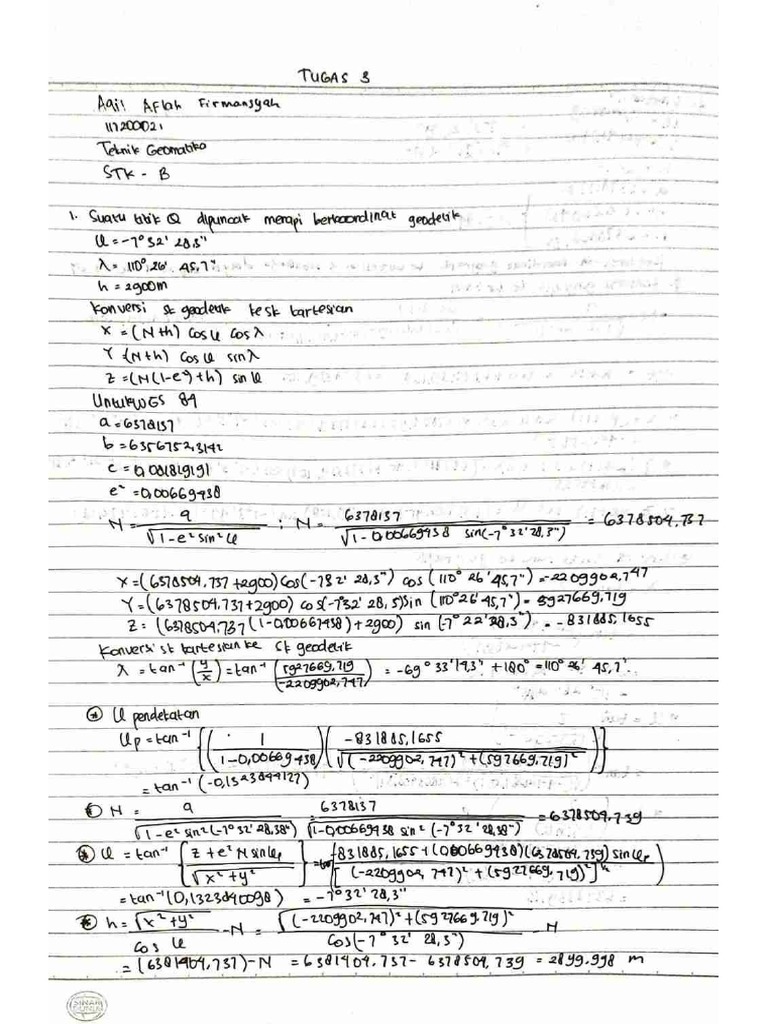 TUGAS 3
Aqil Aflah Firmansyah
117200021
Teknik Geomatika
STK - B
1. Suatu titik Q dipuncak merapi berkoordinat geodetik
φ = -7° 32' 28,3"
λ = 110°, 26' 45,7"
h = 2900m
Konversi st geodetik ke sk kartesian
X = (N+h) cos φ cos λ
Y = (N+h) cos φ sin λ
Z = (N(1-e²)+h) sin φ
Untuk WGS 84
a = 6378137
b = 6356752,3142
c = 0,081819191
e² = 0,00669438
N = a / √(1-e² sin² φ) ; N = 6378137 / √(1-0,00669438 sin(-7° 32' 28,3")) = 6378504,737
X = (6378504,737 + 2900) cos(-732' 28,3") cos (110° 26' 45,7") = -2209902,747
Y = (6378504,737 + 2900) cos(-7°32' 28,5) sin (110°26' 45,7") = 5927669,719
Z = (6378504,737 (1-0,00667438) + 2900) sin (-7° 22' 28,3") = -831885,1655
Konversi st kartesian ke st geodetik
λ = tan⁻¹ (y/x) = tan⁻¹ (5927669,719 / -2209902,747) = -69° 33' 14,3" + 180° = 110° 26' 45,7".
φ pendekatan
φp = tan⁻¹ {(1 / 1-0,00669438) (-831885,1655 / √((-2209902,747)² + (592669,719)²))}
= tan⁻¹ (-0,1323844127)
N = a / √(1-e² sin² (-7° 32' 28,38")) = 6378137 / √(1-0,00669438 sin² (-7° 32' 28,38")) = 6378504,739
φ = tan⁻¹ [z + e² N sin φp / √(x² + y²)] = tan [831885,1655 + (0,00669438)(6378504,739) sin φp / [(-2209902,747)² + (5927669,719)²]^½]
= tan⁻¹ (0,1323840098) = -7° 32' 28,3"
h = √(x² + y²) / cos φ - N = √((-2209902,747)² + (5927669,719)²) / cos(-7° 32' 28,3) - N
= (6381404,737) - N = 6381404,737 - 6378504,739 = 2899,998 m
SINAR DUNIA